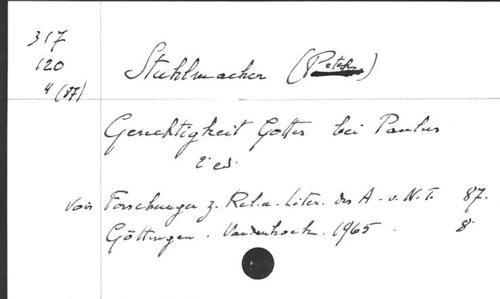 317
120
4 (87)
Stuhlmacher (Peter)
Gerechtigkeit Gottes bei Paulus
2e ed.
Voir Forschungen z. Rel. u. Liter. des A. u. N. T. 87.
Göttingen. Vandenhoeck. 1965. 8°